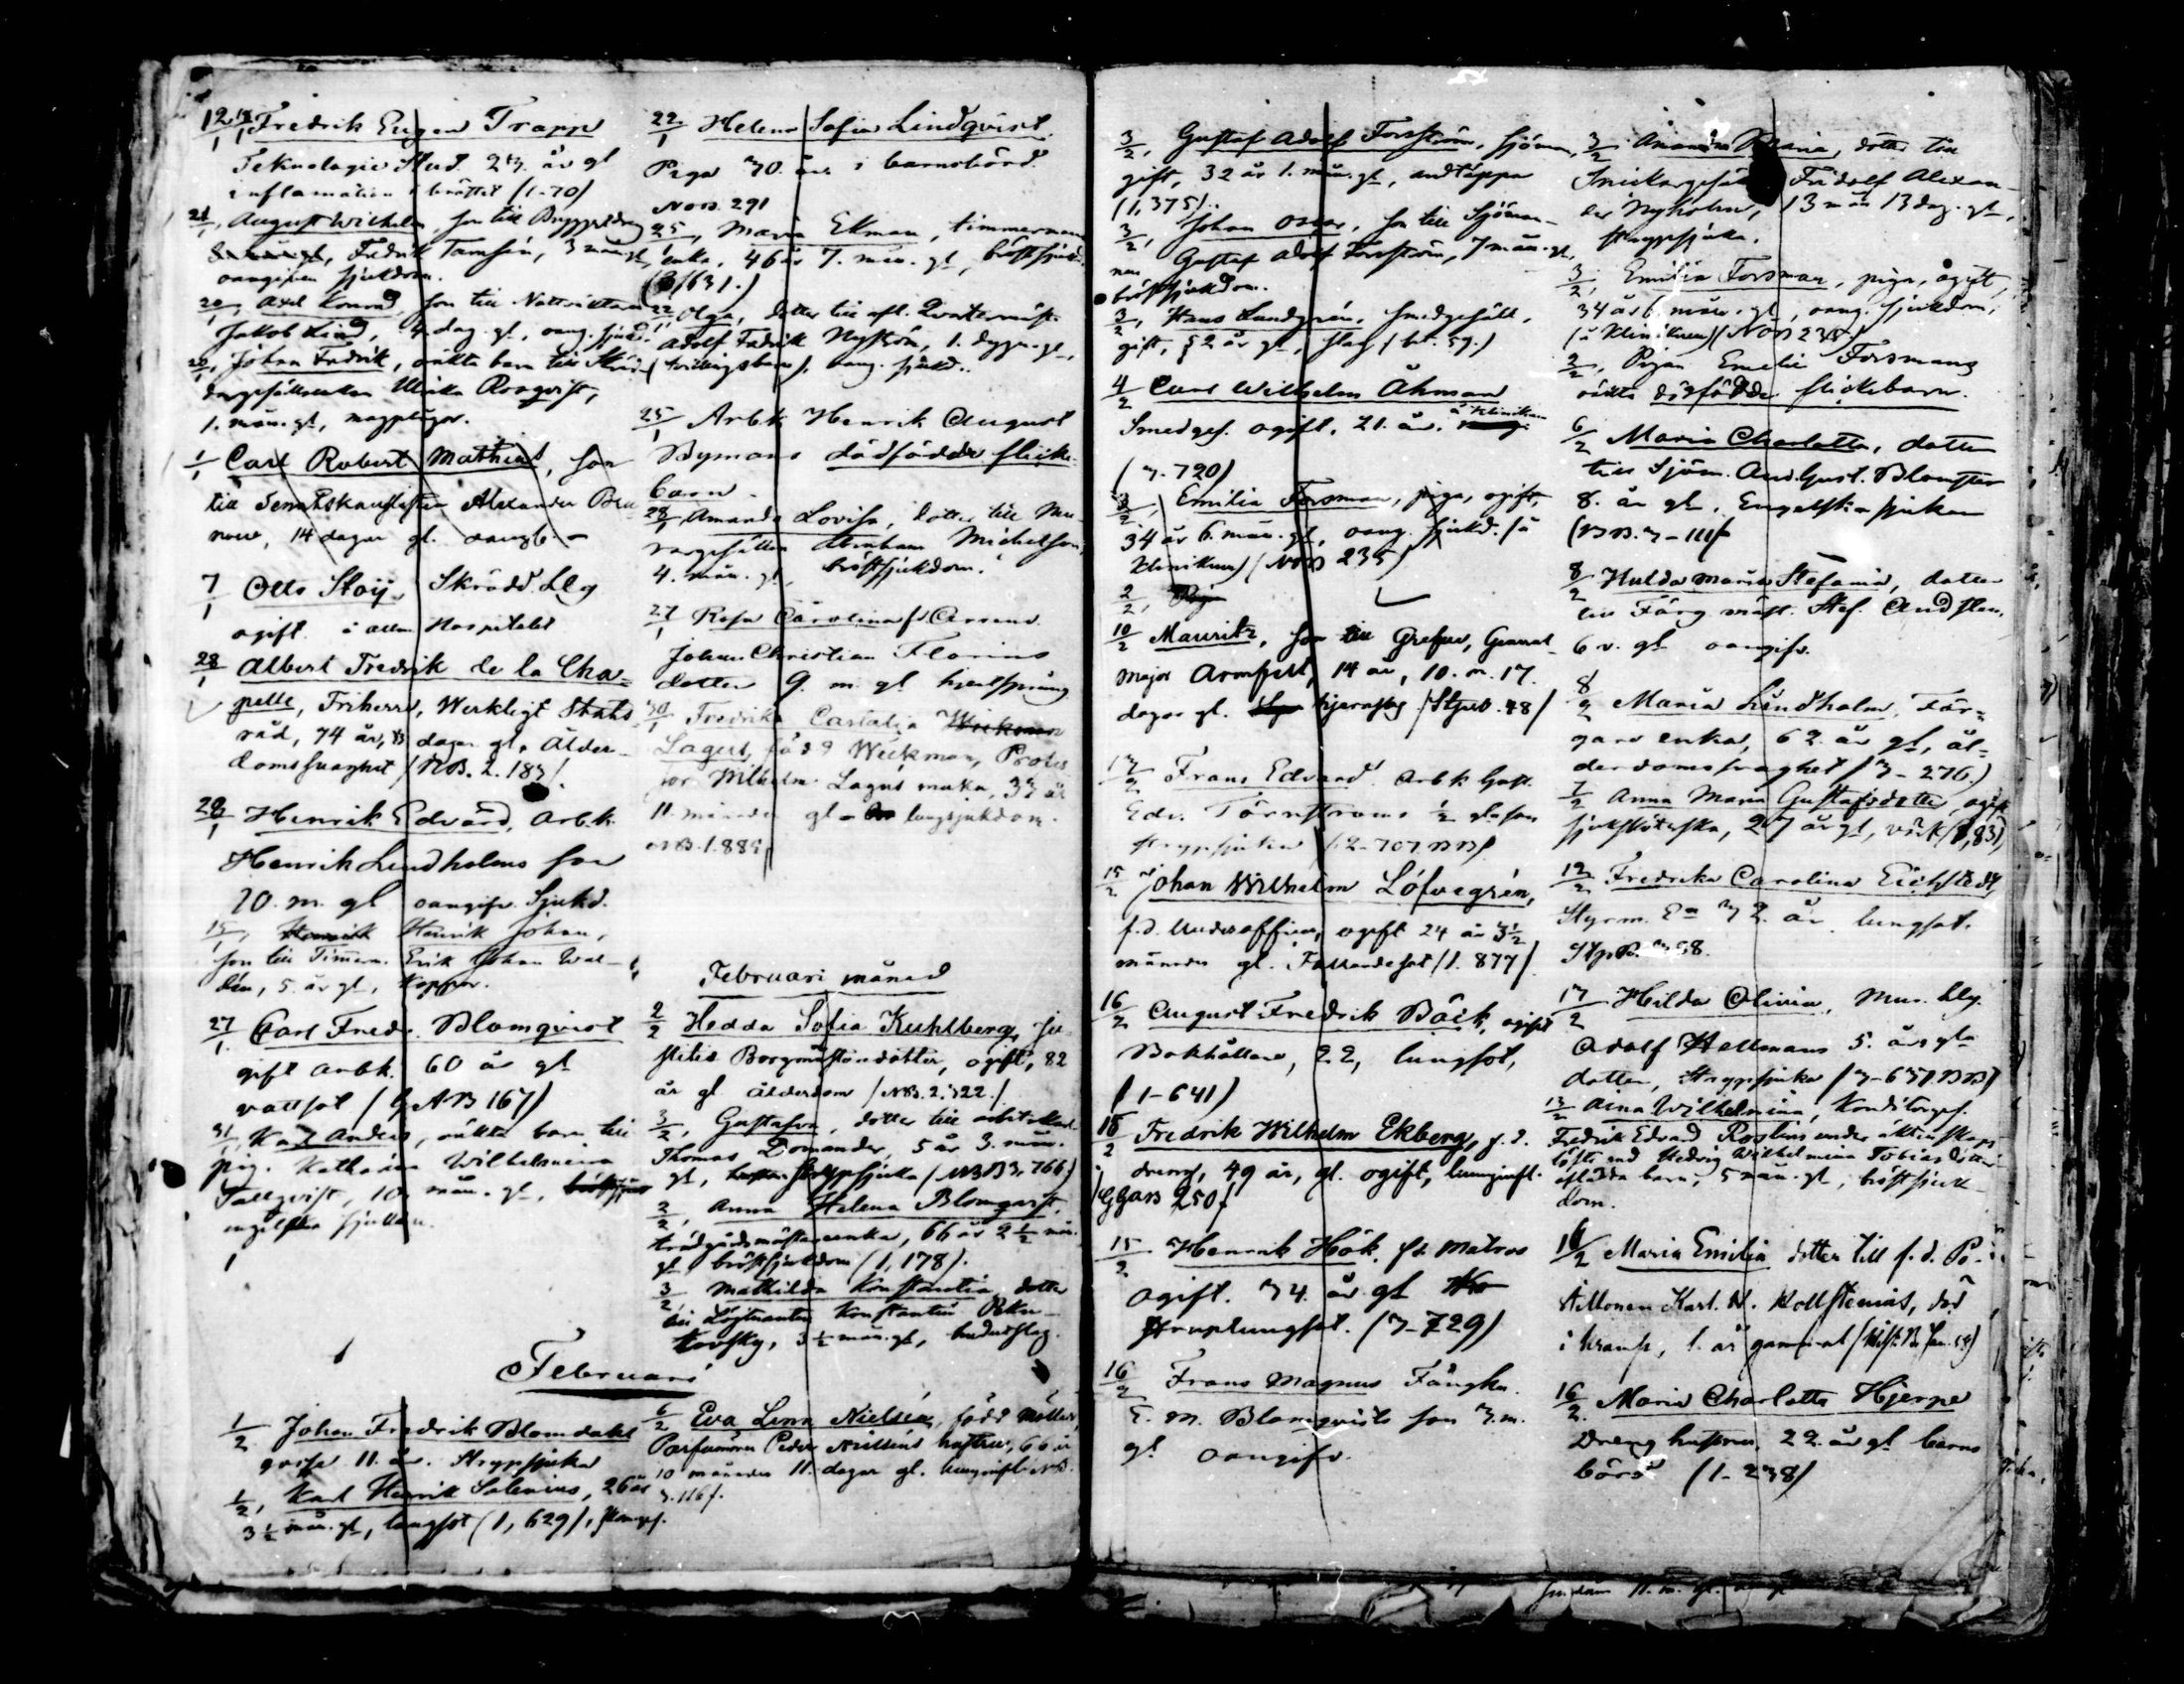 12/1 Fredrik Eugen Trapp
Teknologie Stud. 23. år gl
inflamation i bröstet (1-70)
21/1, August Wilhelm, son till
Fredrik Tamsén, 3 mån gl,
oangifven sjukdom.
20/1, Axel Konrad, son till Nattväktaren
Jakob Lind, 4 dag. gl, oang. sjukd.
Johan Fredrik, oäkta barn till
Ulrika Rosqvist,
1. mån. gl, magplågor.
1/1 Carl Robert Mathias, son
till Senatskanslisten Alexander
14 dagar gl.
7/1 Otto Skrädd. Llg
ogift. i allm. Hospitalet
28/1 Albert Fredrik de la Cha-
pelle, Friherre, Werkligt Stats
råd, 74 år, dagar gl. Ålder-
domssvaghet (NB. 2. 183).
28/1 Henrik Edvard, Arb.k.
Henrik Lindholms son
10. m. gl oangifv. Sjukd.
Henrik Johan,
son till Timm. Erik Johan Wal-
dén, 5. år gl, Koppor.
27/1 Carl Fredr. Blomqvist
gift arbk. 60 år gl
vattsot (G AB 167)
31/1, Karl Anders, oäkta barn till
pig. Katharina Wilhelmina
Tallqvist, 10. mån. gl,
engelska sjukan.
Februari
1/2 Johan Fredrik Blomdahl
gosse 11. år. Strypsjuka
1/2, Karl Henrik Salenius, 26 år
3 1/2 mån. gl, lungsot (1, 629),
22/1 Helena Sofia Lindqvist.
Piga 30. år i barnsbörd.
NoB. 291
25/1, Maria Ekman, timmermans
enka, 46 år 7. mån. gl, bröstsjukd.
(3/631.)
22/1 Olga, dotter till afl. Qvartermäst.
Adolf Fredrik Nyström, 1. dygn. gl,
(tvillingsbarn), oang. sjukd..
25/1 Arbk Henrik August
Bymans dödfödda flicke-
barn.
28/1 Amanda Lovisa, dotter till Mu-
raregesällen Abraham Michelsson,
4. mån. gl, bröstsjukdom.
27/1 Rosa Carolina
Johan Christian Florins
dotter 9. m. gl hjertsprång
30/1 Fredrika Castalia
Lagus, född Weckman, Profes
sor Wilhelm Lagus' maka, 33 år
11. månader gl. lungsjukdom.
NB. 1. 889.
Februari månad
2/2 Hedda Sofia Kuhlberg, Ju
stitie Borgmästaredotter, ogift, 82
år gl ålderdom (NB. 2. 322.)
3/2, Gustafva, dotter till arbetskarl
Thomas Domander, 5 år 3. mån.
gl, strypsjuka (NB B 3, 766)
2/2, Anna Helena Blomqvist,
trädgårdsmästareenka, 66 år 2 1/2 mån.
gl bröstsjukdom (1, 178).
3/2, Mathilda Konstantia dotter
till Löjtnanten Konstantin
3 1/2 mån. gl,
6/2 Eva Lena Nielsén, född Möller,
Parfumören Peder Nielséns hustru, 66 år
10 månader 11. dagar gl. lunginfl. NB.
3. 116).
3/2, Gustaf Adolf Forsström, sjöman,
gift, 32 år 1. mån. gl, andtäppa
(1, 375)..
3/2, Johan Oskar, son till Sjöman-
nen Gustaf Adolf Forsström, 7 mån. gl,
bröstsjukdom.
3/2, Hans Lundgrén, smedgesäll,
gift, 52 år gl, slag (bl. 59.)
4/2 Carl Wilhelm Åhman
Smedges. ogift. 21. år. å Kliniken
(3. 720)
3/2, Emilia Forsman, piga, ogift,
34 år 6. mån. gl, oang. sjukd. (å
kliniken) (NoB 235)
2/2,
10/2 Mauritz, son till Grefve, General-
major Armfelt, 14 år, 10. m. 17.
dagar gl. hjernslag (Stjeb. 48)
13/2 Frans Edvard Arbk Gust.
Edv. Törnströms 1/2 gl. son
strypsjuka (2-707 BB)
15/2 Johan Wilhelm Löfvegrén,
f.d. Underofficer, ogift 24 år 3 1/2
månader gl. Fallandesot (1. 877)
16/2 August Fredrik Bäck, ogift
Bokhållare, 22, lungsot,
(1-641)
18/2 Fredrik Wilhelm Ekberg, f.d.
dreng, 49 år, gl. ogift, lunginfl.
250)
15/2 Henrik Hök, f.d. Matros
ogift. 34. år gl
Struplungsot. (3-729)
16/2 Frans Magnus Fångkn.
E. M. Blomqvists son 3. m.
gl oangifv.
3/2 Amanda Maria, dotter till
Snickargesäll Fridolf Alexan-
der Nyholm, 13 mån 13 dag. gl,
strypsjuka.
3/2, Emilia Forsman, piga, ogift,
34 år 6. mån. gl, oang. sjukdom,
(å Kliniken) (NoB 235)
2/2, Pigan Emelie Forsmans
oäkta dödfödda flickebarn.
6/2 Maria Charlotta, dotter
till Sjöm. And. Gust. Blomster
8. år gl, Engelska sjukan
(BB. 3-111)
8/2 Hulda Maria Stefania, dotter
till Färg mäst. Stef.
6 v. gl oangifv.
8/2 Maria Lindholm, Fär-
gare enka, 62. år gl, ål-
derdomssvaghet (3-276.)
7/2 Anna Maria Gustafsdotter, ogift
sjuksköterska, 27 år gl,
12/2 Fredrika Carolina Eichstedt,
Styrm. Ea 32. år lungsot.
17/2 Hilda Olivia, Mur. Llg.
Adolf Hellmans 5. års gla
dotter, Strypsjuka (3-637. BB)
13/2 Aina Wilhelmina, Konditorges.
Fredrik Edvard Roslins under äktenskaps
löfte med Hedvig Wilhelmina Tobiasdotter
aflade barn, 5 mån. gl, bröstsjuk-
dom.
16/2 Maria Emilia dotter till f.d. Po-
stillonen Karl. N. Kollstenius, död
i kramp, 1. år gammal
16/2 Maria Charlotta Hjerpe
Dreng hustru, 22. år gl barns
börd (1-238)